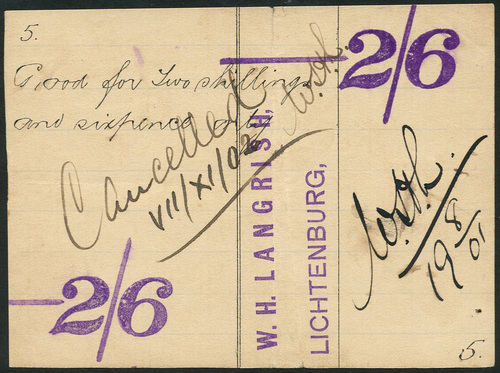 5.
2/6
Good for Two shillings
and sixpence only
Cancelled
VII/XI/02
W. H. LANGRISH,
LICHTENBURG,
19 8/01
2/6
5.